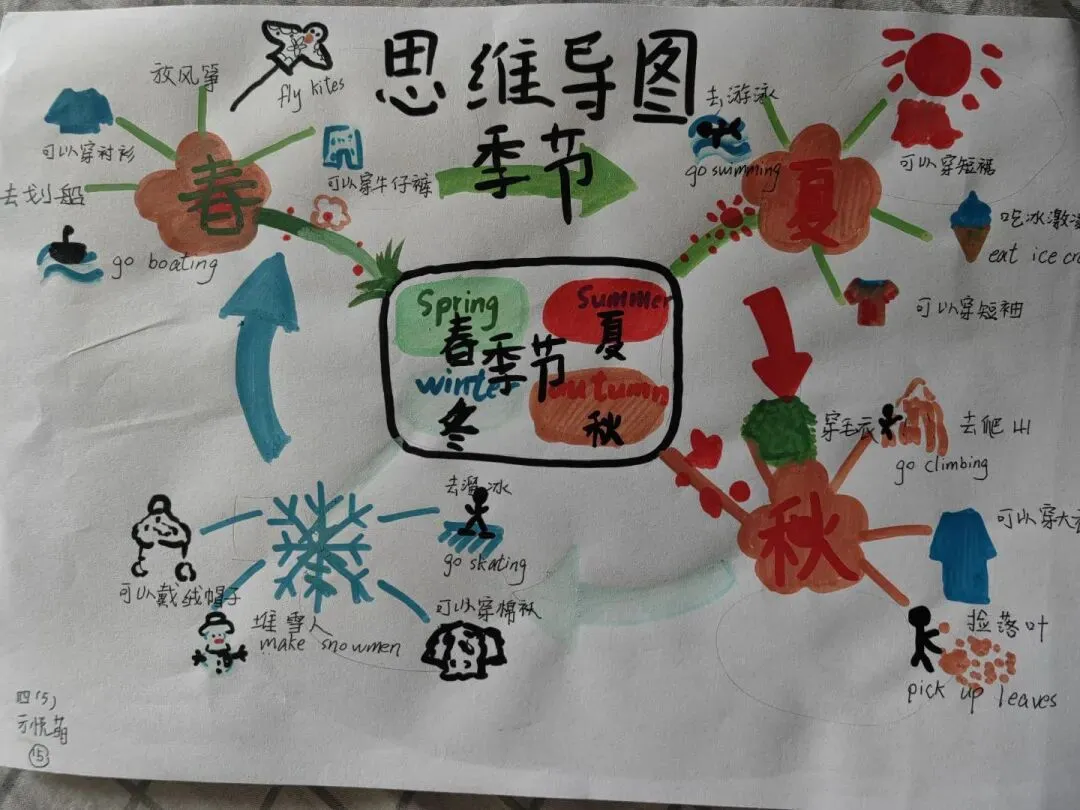 思维导图
季节
放风筝
fly kites
可以穿衬衫
春
可以穿牛仔裤
去划船
go boating
去游泳
go swimming
夏
可以穿短裙
吃冰激凌
eat ice cr
可以穿短袖
spring
summer
春
夏
季节
winter
autumn
冬
秋
穿毛衣
去爬山
go climbing
秋
可以穿大衣
捡落叶
pick up leaves
去溜冰
go skating
可以戴绒帽子
堆雪人
make snowmen
可以穿棉袄
四(5)
15